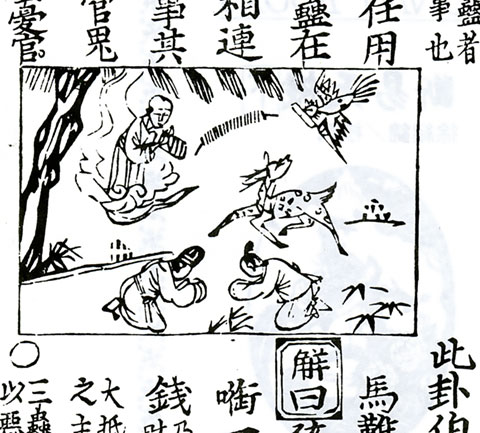 蠱者
事也
任用
蠱在
相連
事其
官鬼
憂官
此卦伯
馬難
解曰
啣
錢
大抵
之主
三蠱
以